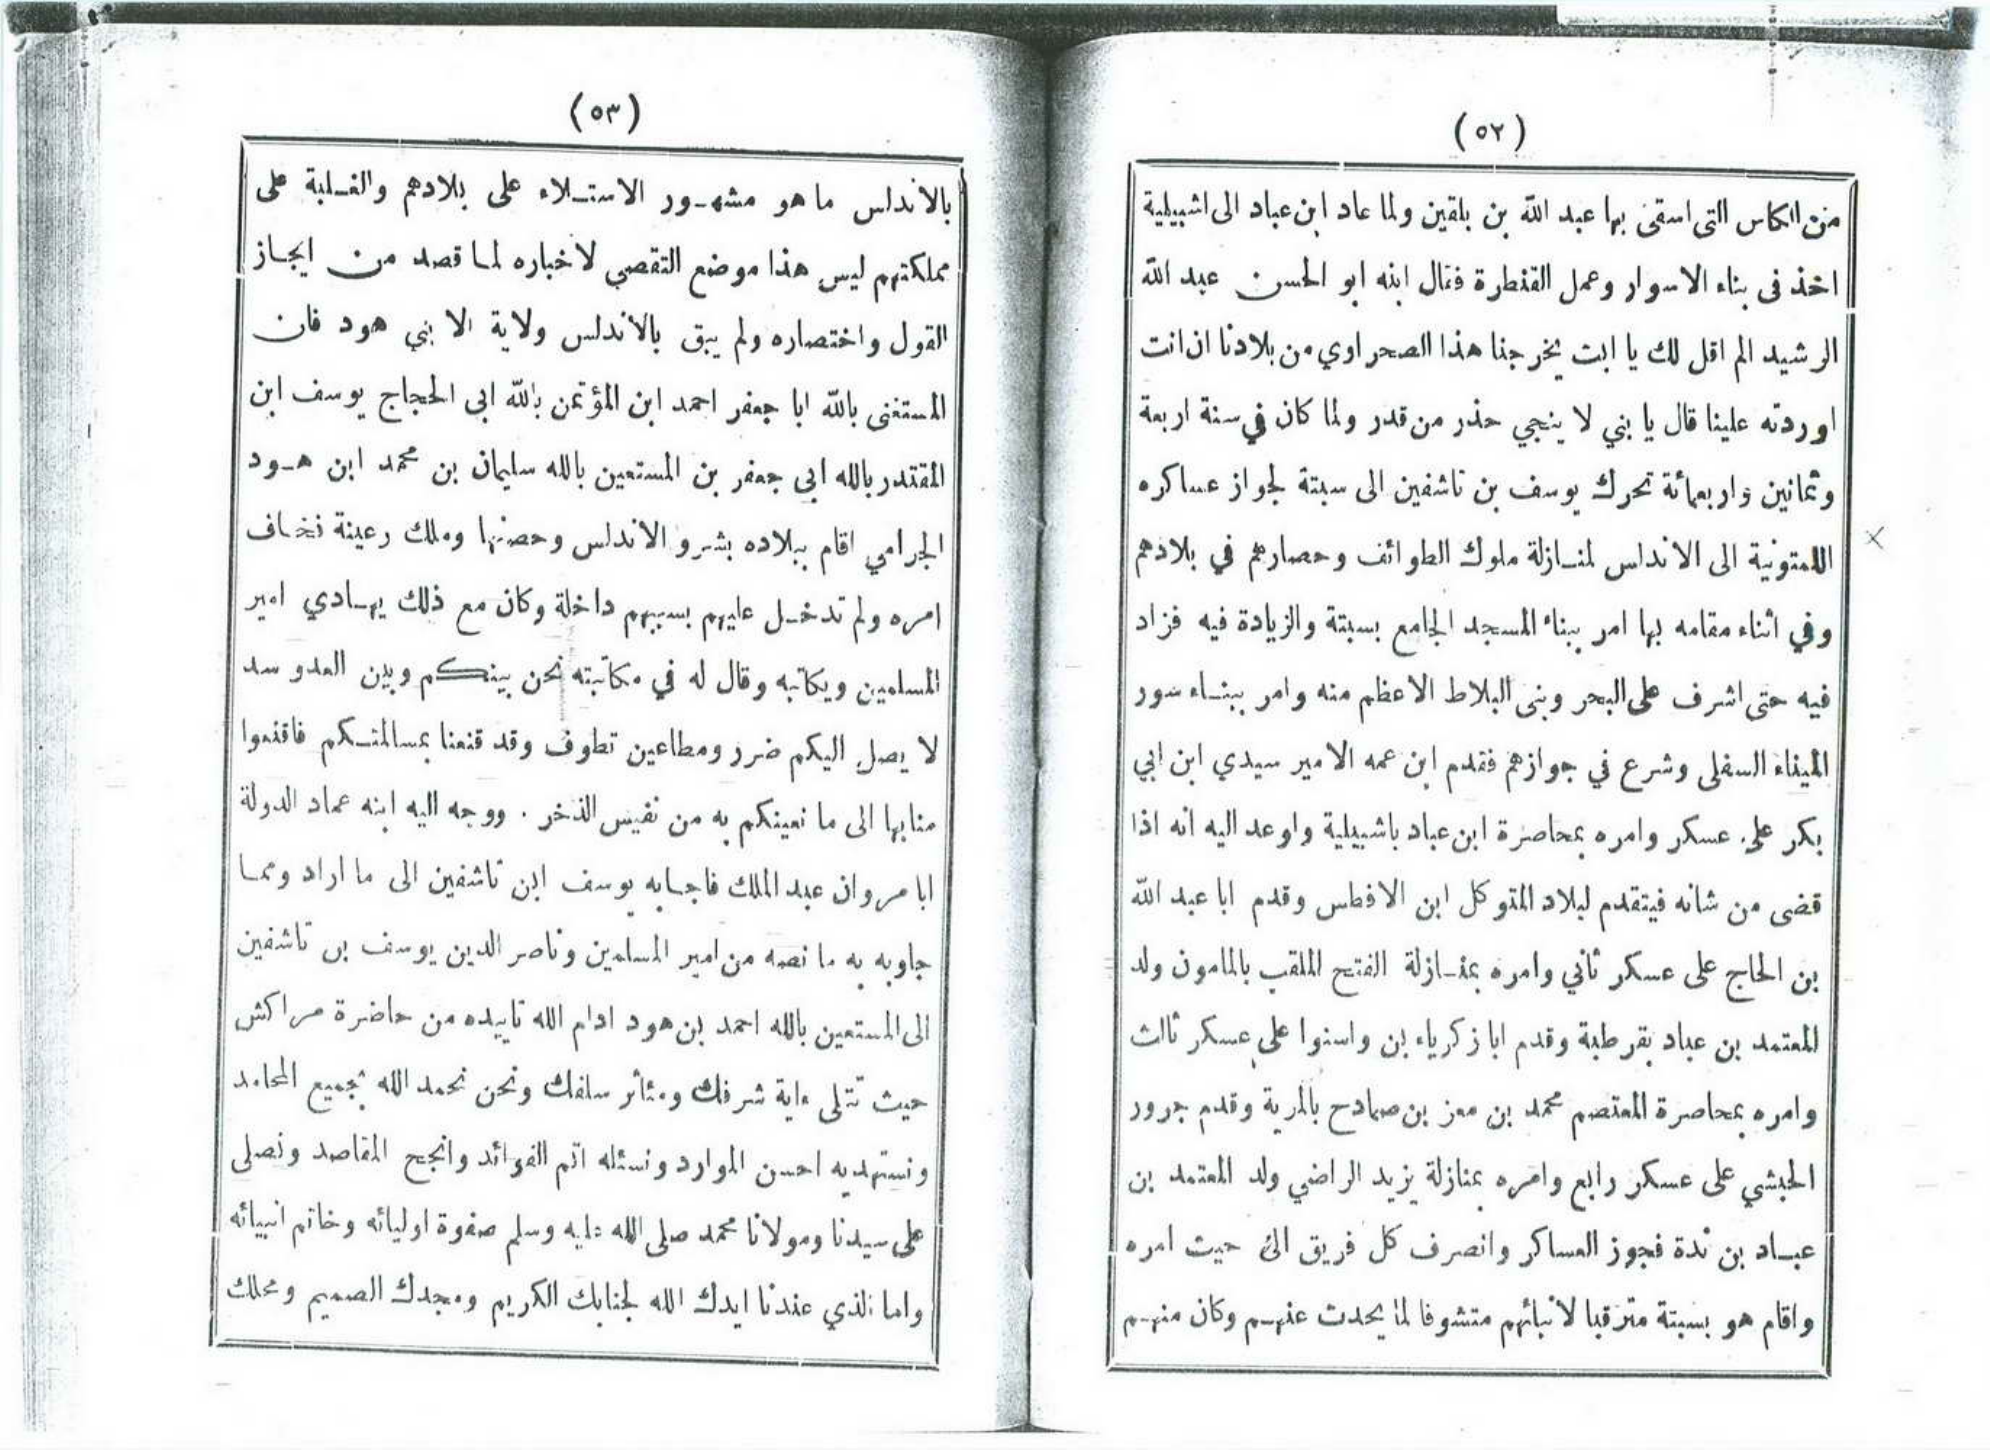 (٥٢)
من الكاس التي اسقى بها عبد الله بن بلقين ولما عاد ابن عباد الى اشبيلية
اخذ فى بناء الاسوار وعمل القنطرة فقال ابنه ابو الحسن عبد الله
الرشيد الم اقل لك يا ابت يخرجنا هذا الصحراوي من بلادنا ان انت
اوردته علينا قال يا بني لا ينجي حذر من قدر ولما كان في سنة اربعة
وثمانين واربعمائة تحرك يوسف بن تاشفين الى سبتة لجواز عساكره
اللمتونية الى الاندلس لمنازلة ملوك الطوائف وحصارهم في بلادهم
وفي اثناء مقامه بها امر ببناء المسجد الجامع بسبتة والزيادة فيه فزاد
فيه حتى اشرف على البحر وبنى البلاط الاعظم منه وامر ببناء سور
الميناء السفلى وشرع في جوازهم فقدم ابن عمه الامير سيدي ابن ابي
بكر على عسكر وامره بمحاصرة ابن عباد باشبيلية واوعد اليه انه اذا
قضى من شانه فيتقدم لبلاد المتوكل ابن الافطس وقدم ابا عبد الله
بن الحاج على عسكر ثاني وامره بمنازلة الفتح الملقب بالمامون ولد
المعتمد بن عباد بقرطبة وقدم ابا زكرياء بن واسنوا على عسكر ثالث
وامره بمحاصرة المعتصم محمد بن معز بن صمادح بالمرية وقدم جرور
الحبشي على عسكر رابع وامره بمنازلة يزيد الراضي ولد المعتمد بن
عباد بن ندة فجوز العساكر وانصرف كل فريق الى حيث امره
واقام هو بسبتة مترقبا لانبائهم متشوفا لما يحدث عنهم وكان منهم
(٥٣)
بالاندلس ما هو مشهور الاستلاء على بلادهم والغلبة على
مملكتهم ليس هذا موضع التقصي لاخباره لما قصد من ايجاز
القول واختصاره ولم يبق بالاندلس ولاية الا بني هود فان
المستغنى بالله ابا جعفر احمد ابن المؤتمن بالله ابى الحجاج يوسف ابن
المقتدر بالله ابى جعفر بن المستعين بالله سليمان بن محمد ابن هود
الجرامي اقام ببلاده بشرو الاندلس وحصنها وملك رعينة نخاف
امره ولم تدخل عليهم بسببهم داخلة وكان مع ذلك يهادي امير
المسلمين ويكاتبه وقال له في مكاتبته نحن بينكم وبين العدو سد
لا يصل اليكم ضرر ومطاعين تطوف وقد قنعنا بمسالمتكم فاقنعوا
منا بها الى ما نعينكم به من نفيس الذخر . ووجه اليه ابنه عماد الدولة
ابا مروان عبد الملك فاجابه يوسف ابن تاشفين الى ما اراد ومما
جاوبه به ما نصه من امير المسلمين وناصر الدين يوسف بن تاشفين
الى المستعين بالله احمد بن هود ادام الله تاييده من حاضرة مراكش
حيث تتلى ءاية شرفك ومئاثر سلفك ونحن نحمد الله بجميع المحامد
ونستهديه احسن الموارد ونسئله اتم الفوائد وانجح المقاصد ونصلى
على سيدنا ومولانا محمد صلى الله عليه وسلم صفوة اوليائه وخاتم انبيائه
واما الذي عندنا ايدك الله لجنابك الكريم ومجدك الصميم ومحلك